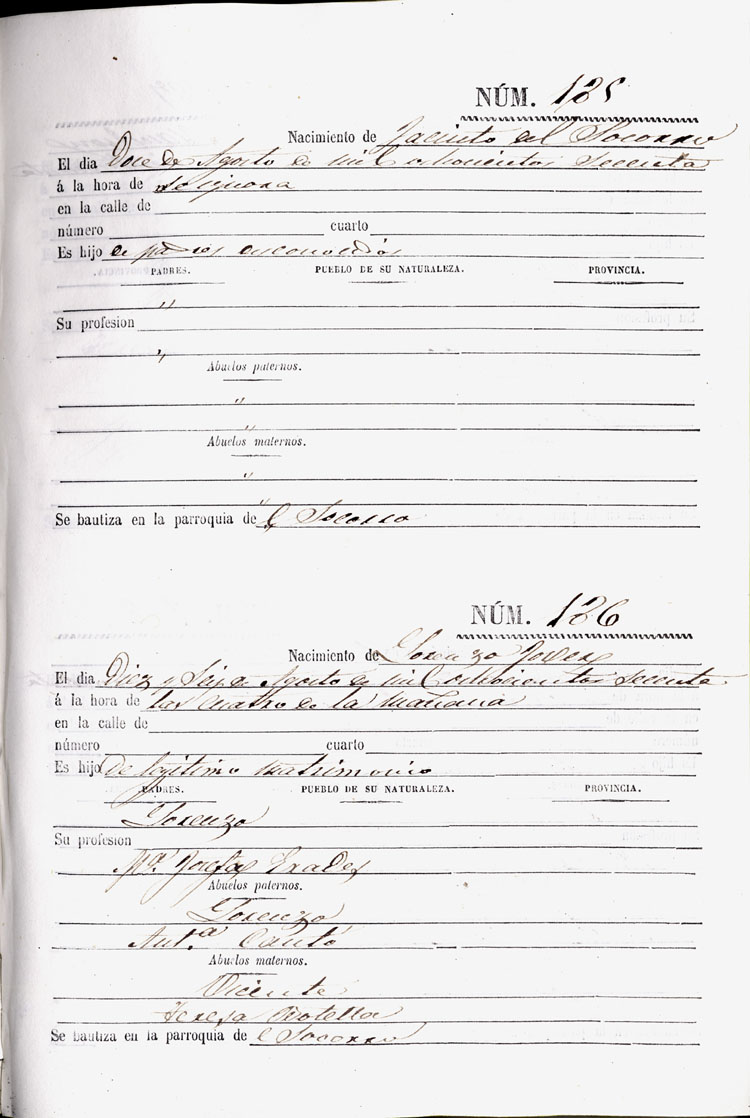 NÚM. 125
Nacimiento de Jacinto del Socorro
El dia Doce de Agosto de mil ochocientos secenta
á la hora de se ignora
en la calle de
número cuarto
Es hijo de padres desconocidos
PADRES. PUEBLO DE SU NATURALEZA. PROVINCIA.
"
Su profesion
"
Abuelos paternos.
"
"
Abuelos maternos.
"
"
Se bautiza en la parroquia de el Socorro
NÚM. 126
Nacimiento de Lorenzo
El dia Diez y Seis de Agosto de mil ochocientos secenta
á la hora de las cuatro de la mañana
en la calle de
número cuarto
Es hijo de legitimo matrimonio
PADRES. PUEBLO DE SU NATURALEZA. PROVINCIA.
Lorenzo
Su profesion
Mª Josefa
Abuelos paternos.
Lorenzo
Antª Cantó
Abuelos maternos.
Vicente
Teresa Botella
Se bautiza en la parroquia de el Socorro